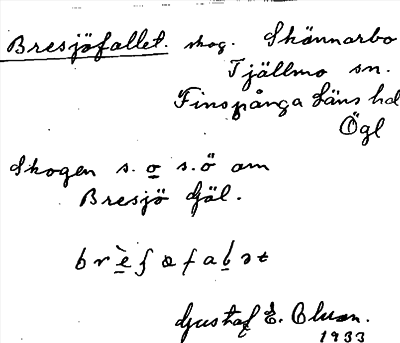 Bresjöfallet. skog. Skönnarbo
Tjällmo sn.
Finspånga Läns hd
Ögl
Skogen s. o s.ö om
Bresjö Gäl.
Gustaf E.
1933